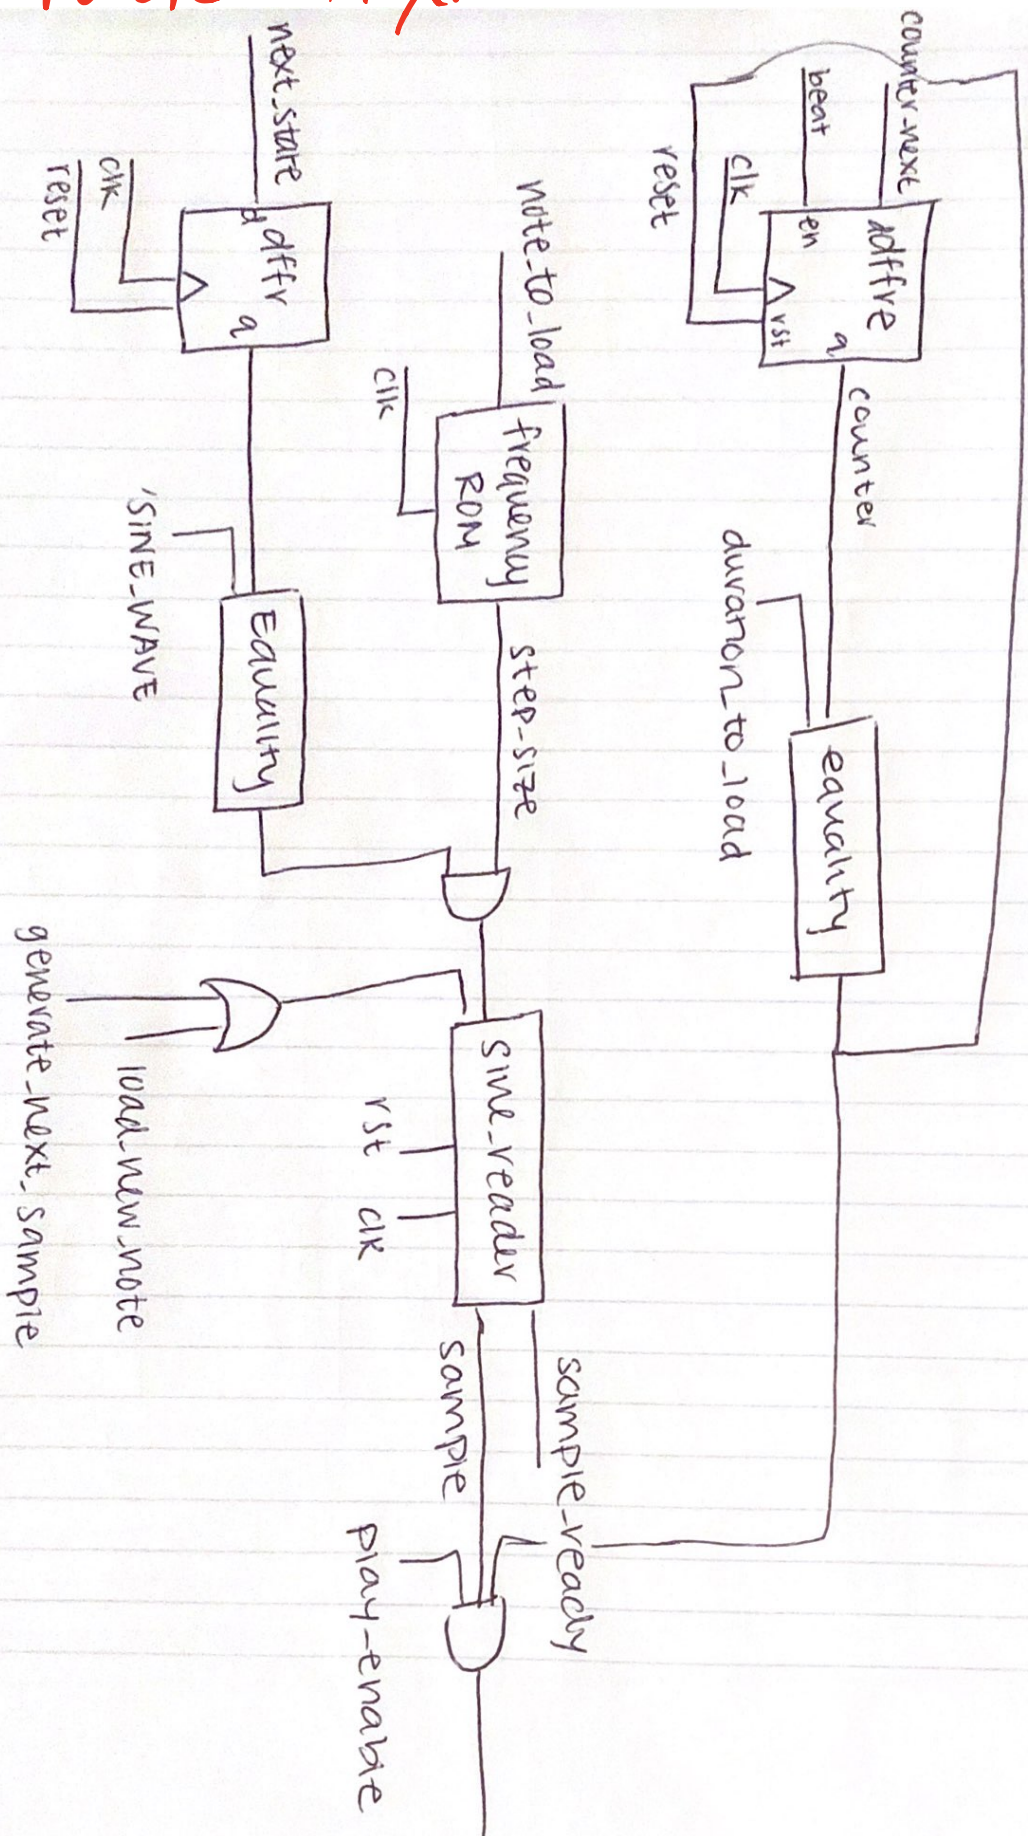 counter_next
beat
clk
reset
d dffre
en
rst
q
counter
duration_to_load
equality
note_to_load
clk
frequency
ROM
step_size
next_state
clk
reset
d dffr
q
'SINE_WAVE
Equality
generate_next_sample
load_new_note
sine_reader
rst
clk
sample_ready
sample
play_enable